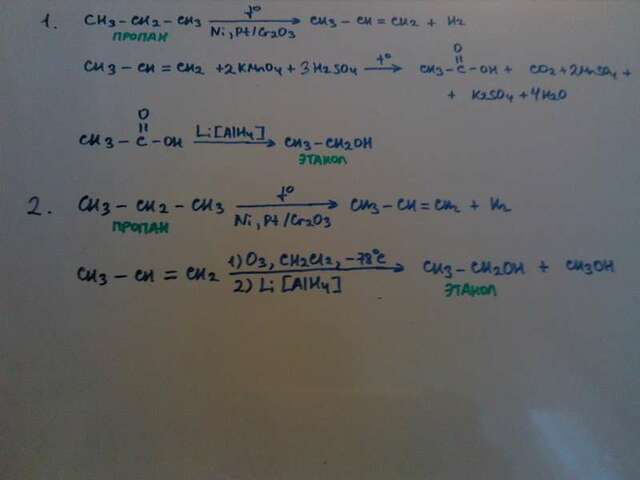 1. CH3 – CH2 – CH3 t° Ni, Pt/Cr2O3 → CH3 – CH = CH2 + H2
ПРОПАН
CH3 – CH = CH2 + 2KMnO4 + 3H2SO4 t° → CH3 – C – OH + CO2 + 2MnSO4 +
O
+ K2SO4 + 4H2O
O
CH3 – C – OH Li[AlH4] → CH3 – CH2OH
ЭТАНОЛ
2. CH3 – CH2 – CH3 t° Ni, Pt/Cr2O3 → CH3 – CH = CH2 + H2
ПРОПАН
CH3 – CH = CH2 1) O3, CH2Cl2, –78°C 2) Li[AlH4] → CH3 – CH2OH + CH3OH
ЭТАНОЛ